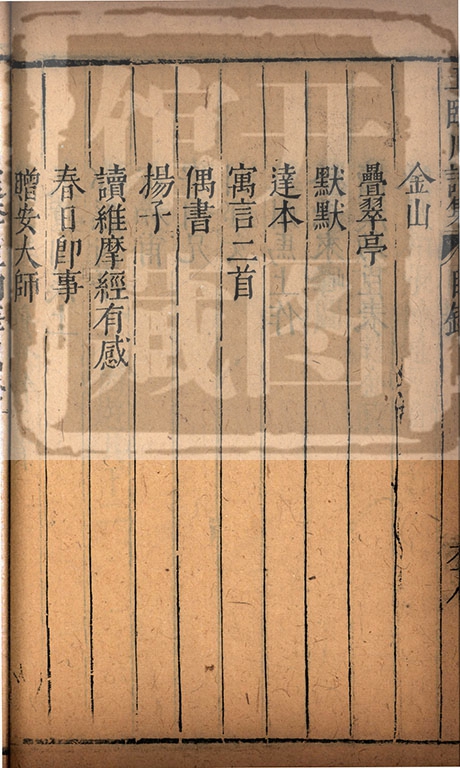 金山
疊翠亭
默默
達本
寓言二首
偶書
揚子
讀維摩經有感
春日卽事
贈安大師